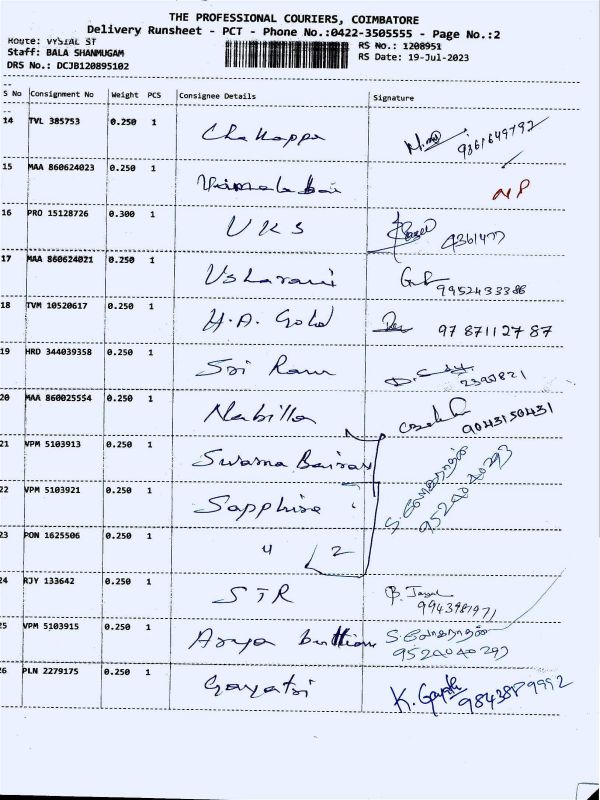 THE PROFESSIONAL COURIERS, COIMBATORE
Delivery Runsheet - PCT - Phone No.:0422-3505555 - Page No.:2
Route: VYSIAL ST
RS No.: 1208951
Staff: BALA SHANMUGAM
RS Date: 19-Jul-2023
DRS No.: DCJB120895102
S No Consignment No Weight PCS Consignee Details Signature
14 TVL 385753 0.250 1 Chakkappa 9361649792
15 MAA 860624023 0.250 1 Vimala Bai NP
16 PRO 15128726 0.300 1 UKS 4361477
17 MAA 860624021 0.250 1 Usharani 9952433386
18 TVM 10520617 0.250 1 H.A. Gold 97 87112787
19 HRD 344039358 0.250 1 Sri Ram 2390821
20 MAA 860025554 0.250 1 Nabilla 9043150431
21 VPM 5103913 0.250 1 Swarna Bairav
22 VPM 5103921 0.250 1 Sapphire 9524040293
23 PON 1625506 0.250 1 " 2
24 RJY 133642 0.250 1 STR 9943987971
25 VPM 5103915 0.250 1 Arya Bullion 9524040293
26 PLN 2279175 0.250 1 Gayatri K. Gayatri